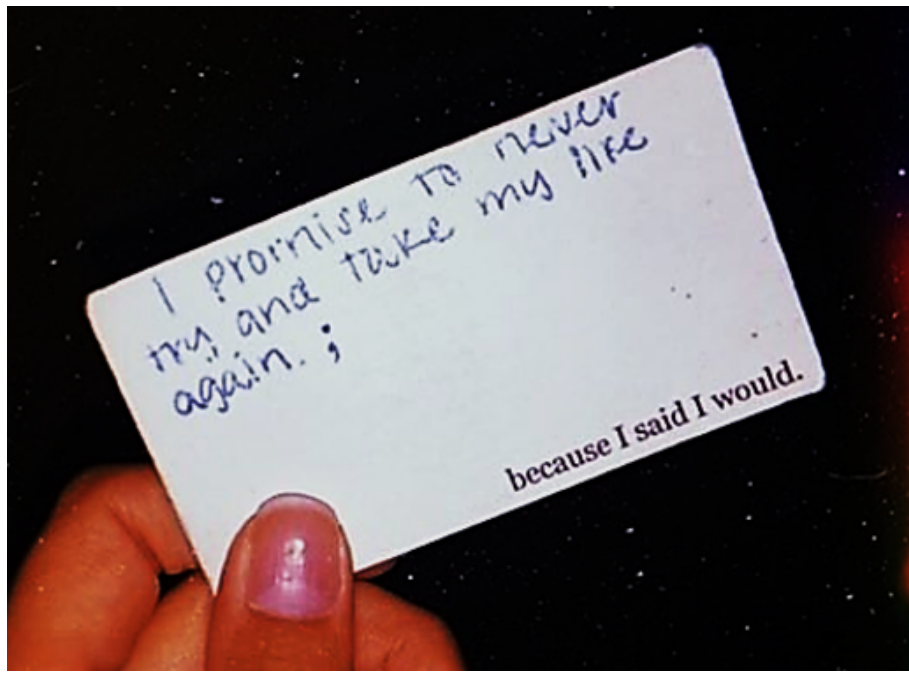 I promise to never
try and take my life
again. ;
because I said I would.